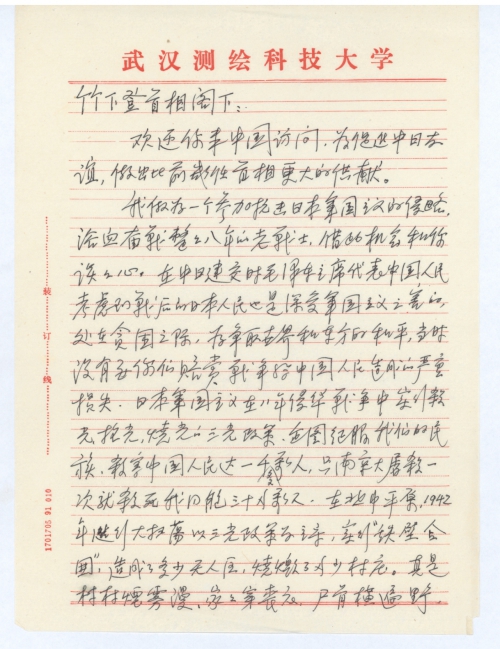 武汉测绘科技大学
竹下登首相阁下：
欢迎你来中国访问，为促进中日友
谊，做出比前几任首相更大的供献。
我做为一个参加抗击日本军国主义的侵略，
浴血奋战整整八年的老战士，借此机会和你
谈谈心。在中日建交时毛泽东主席代表中国人民
考虑到战后的日本人民也是深受军国主义之害的
处在贫困之际，在争取世界和东方的和平，当时
没有要你们赔赏战争给中国人民造成的严重
损失。日本军国主义在八年侵华战争中实行杀
光抢光，烧光的三光政策，企图征服我们的民
族，杀害中国人民达一千多万人，只南京大屠杀一
次就杀死我同胞三十多万人。在华北中平原，1942
年进行大扫荡以三光政策为主导，实行“铁壁合
围”，造成了多少无人区，烧毁了多少村庄。真是
村村烟雾漫，家家第丧衣，尸首横遍野。
装 订 线
1701705 91 010